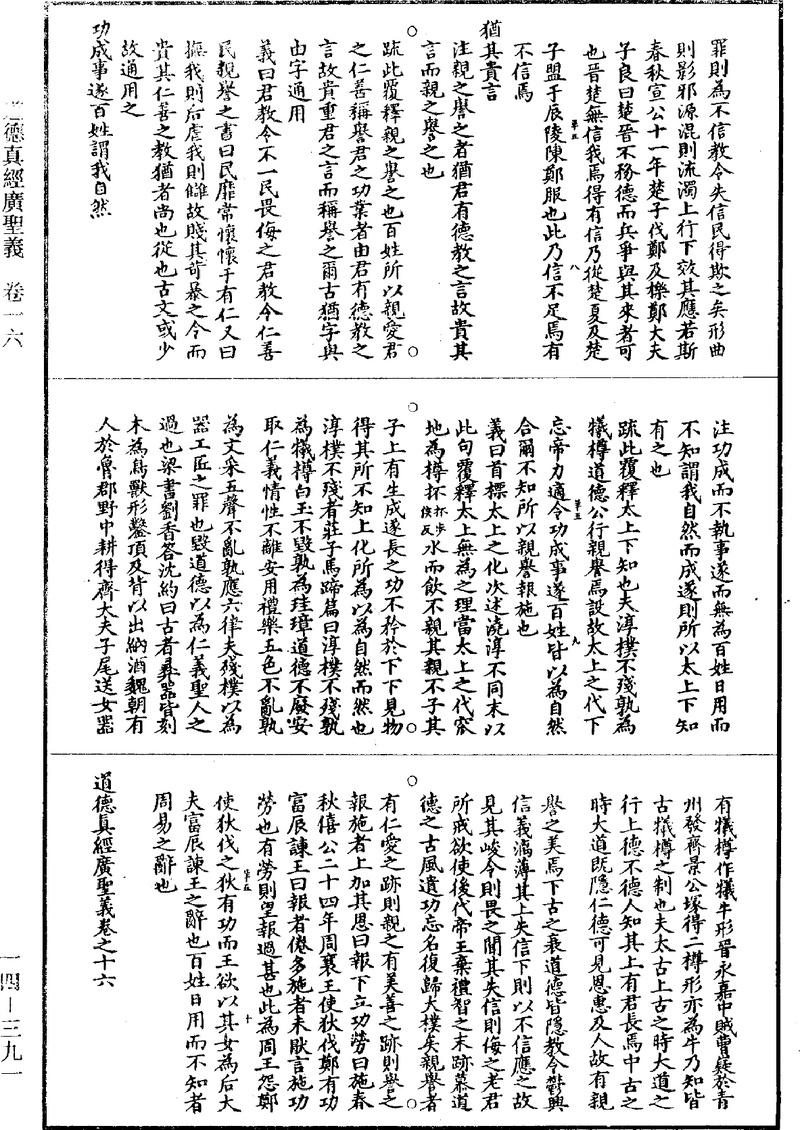 罪則為不信教令失信民得欺之矣形曲
則影邪源混則流濁上行下效其應若斯
春秋宣公十一年楚子伐鄭及櫟鄭大夫
子良曰楚晉不務德而兵爭與其來者可
也晉楚無信我焉得有信乃從楚夏及楚
子盟于辰陵陳鄭服也此乃信不足焉有
不信焉
猶其貴言
注親之譽之者猶君有德教之言故貴其
言而親之譽之也
疏此覆釋親之譽之也百姓所以親愛君
之仁善稱譽君之功業者由君有德教之
言故貴重君之言而稱譽之爾古猶字與
由字通用
義曰君教令不一民畏侮之君教令仁善
民親譽之書曰民靡常懷懷于有仁又曰
撫我則后虐我則讎故賤其苛暴之令而
貴其仁善之教猶者尚也從也古文或少
故通用之
功成事遂百姓謂我自然
注功成而不執事遂而無為百姓日用而
不知謂我自然而成遂則所以太上下知
有之也
疏此覆釋太上下知也夫淳樸不殘孰為
犧樽道德公行親譽焉設故太上之代下
忘帝力適令功成事遂百姓皆以為自然
合爾不知所以親譽報施也
義曰首標太上之化次述澆淳不同末以
此句覆釋太上無為之理當太上之代窊
地為樽抔水而飲不親其親不子其
子上有生成遂長之功不矜於下下見物
得其所不知上化所為以為自然而然也
淳樸不殘者莊子馬蹄篇曰淳樸不殘孰
為犧樽白玉不毀孰為珪璋道德不廢安
取仁義情性不離安用禮樂五色不亂孰
為文采五聲不亂孰應六律夫殘樸以為
器工匠之罪也毀道德以為仁義聖人之
過也梁書劉香答沈約曰古者彝器皆刻
木為鳥獸形鑿頂及背以出納酒魏朝有
人於魯郡野中耕得齊大夫子尾送女器
有犧樽作犧牛形晉永嘉中賊曹嶷於青
州發齊景公塚得二樽形亦為牛乃知皆
古犧樽之制也夫太古上古之時大道之
行上德不德人知其上有君長焉中古之
時大道既隱仁德可見恩惠及人故有親
譽之美焉下古之衰道德皆隱教令欝興
信義澆薄其上失信下則以不信應之故
見其峻令則畏之聞其失信則侮之老君
所戒欲使後代帝王棄禮智之末跡慕道
德之古風遺功忘名復歸大樸矣親譽者
有仁愛之跡則親之有美善之跡則譽之
報施者上加其恩曰報下立功勞曰施春
秋僖公二十四年周襄王使狄伐鄭有功
富辰諫王曰報者倦多施者未猒言施功
勞也有勞則望報過甚也此為周王怨鄭
使狄伐之狄有功而王欲以其女為后大
夫富辰諫王之辭也百姓日用而不知者
周易之辭也
道德真經廣聖義卷之十六
德真經廣聖義 卷一六
一四—三九一